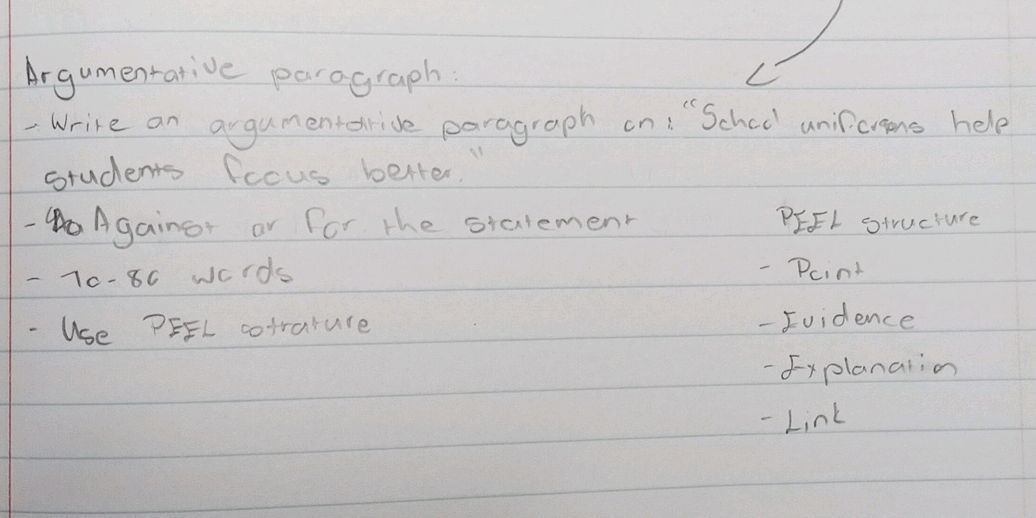 Argumentative paragraph:
- Write an argumentative paragraph on: "School uniforms help
students focus better."
- Against or for the statement
- 70-80 words
- Use PEEL strature
PEEL structure
- Point
- Evidence
- Explanation
- Link